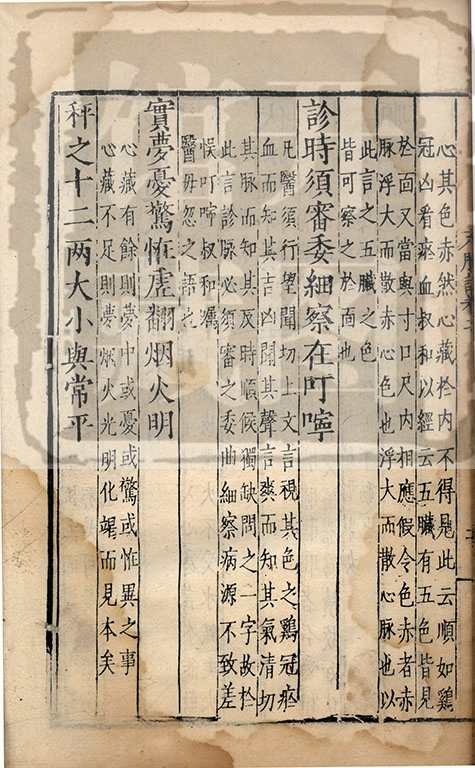 心其色赤然心藏於内不得見此云順如雞
冠凶看瘀血叔和以經云五臟有五色皆見
於面又當與寸口尺内相應假令色赤者赤
脉浮大而散赤心色也浮大而散心脉也以
此言之五臟之色
皆可察之於面也
診時須審委細察在叮嚀
凡醫須行望聞切上文言視其色之雞冠瘀
血而知其吉凶聞其聲言爽而知其氣清切
其脉而知其反時順候獨缺問之一字故於
此言診脉必須審之委曲細察病源不致差
悞叮嚀叔和囑
醫毋忽之語也
實夢憂驚恠虛翻烟火明
心藏有餘則夢中或憂或驚或恠異之事
心藏不足則夢烟火光明化竭而見本矣
秤之十二两大小與常平